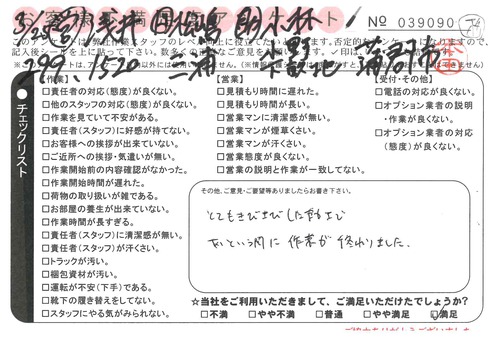 No 039090
3/29
299,1320 三浦 下野地 蒲郡市
チェックリスト
【作業】
□責任者の対応(態度)が良くない。
□他のスタッフの対応(態度)が良くない。
□作業を見ていて不安がある。
□責任者(スタッフ)に好感が持てない。
□お客様への挨拶が出来ていない。
□ご近所への挨拶・気遣いが無い。
□作業開始前の内容確認がなかった。
□作業開始時間が遅れた。
□荷物の取り扱いが雑である。
□お部屋の養生が出来ていない。
□作業時間が長すぎる。
□責任者(スタッフ)に清潔感が無い。
□責任者(スタッフ)が汗くさい。
□トラックが汚い。
□梱包資材が汚い。
□運転が不安(下手)である。
□靴下の履き替えをしてない。
□スタッフにやる気がみられない。
【営業】
□見積もり時間に遅れた。
□見積もり時間が長い。
□営業マンに清潔感が無い。
□営業マンが煙草くさい。
□営業マンが汗くさい。
□営業態度が良くない。
□営業の説明と作業が一致してない。
【受付・その他】
□電話の対応が良くない。
□オプション業者の説明
・作業が良くない。
□オプション業者の対応
(態度)が良くない。
その他、ご意見・ご要望等ありましたらお書き下さい。
とてもきびきびした動きで
あっという間に作業が終わりました。
☆当社をご利用いただきまして、ご満足いただけたでしょうか?
□不満 □やや不満 □普通 □やや満足 ☑満足
ご協力ありがとうございました